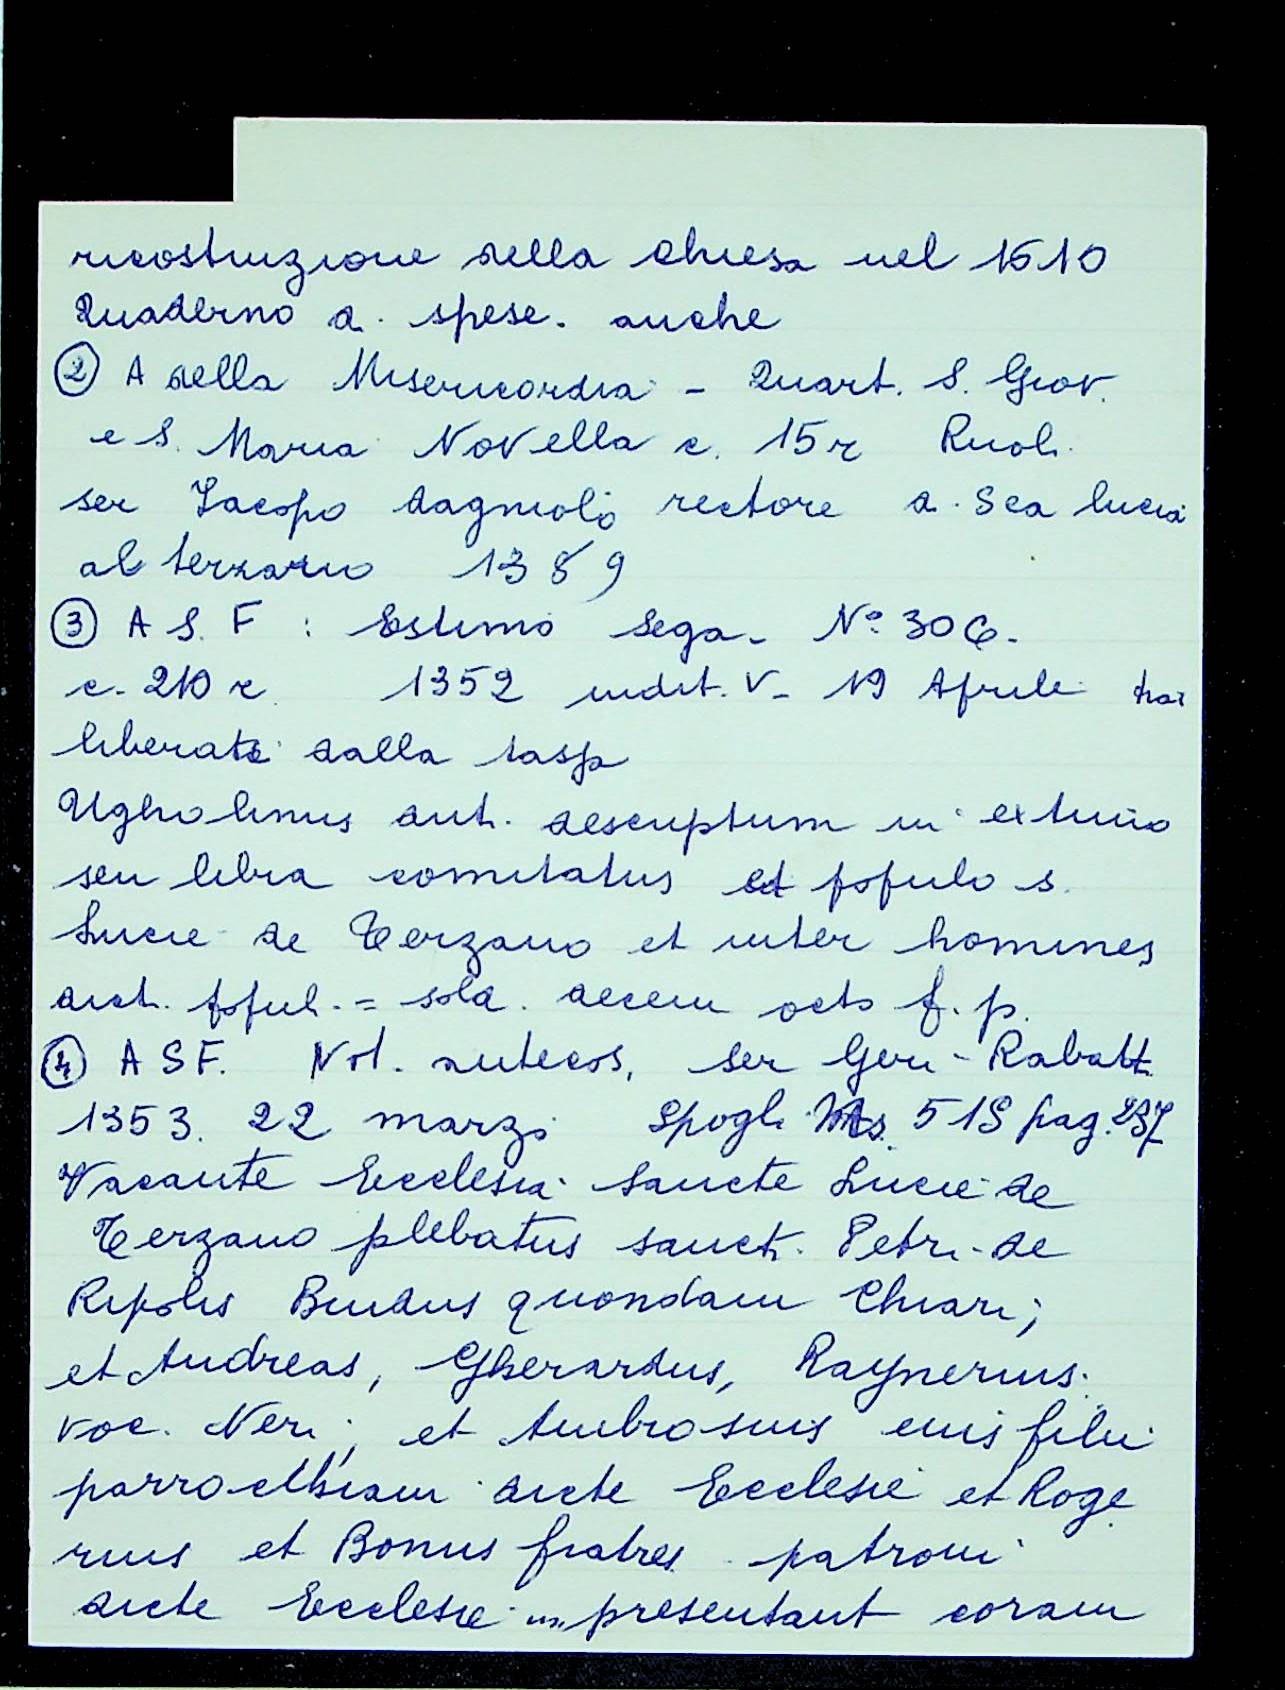 ricostruzione della chiesa nel 1610
Quaderno d. spese. anche
② A della Misericordia - Quart. S. Giov.
e S. Maria Novella c. 15 r Ruoli.
ser Iacopo dagniolo rectore d. Sca lucia
al terzano 1389
③ A S. F : Estimo Sega - N° 306-
c. 210 r 1352 indit. V - 19 Aprile trai
liberati dalla
Ugholinus ant. descriptum in extimo
seu libra comitatus et popolo s.
Lucie de Terzano et inter homines
dict. popul. = sold. decem octo f. p.
④ A S F. Not. antecos, ser Geri - Rabatt.
1353. 22 marzo Spogli Ms. 519 pag. 237
Vacante Ecclesia Sancte Lucie de
Terzano plebatus sanct. Petri de
Ripolis Bindus quondam Chiari;
et Andreas, Gherardus, Raynerius
voc. Neri; et Ambrosius eius filii
parrochiam dicte Ecclesie et Roge
rius et Bonus fratres patroni
dicte Ecclesie presentant coram